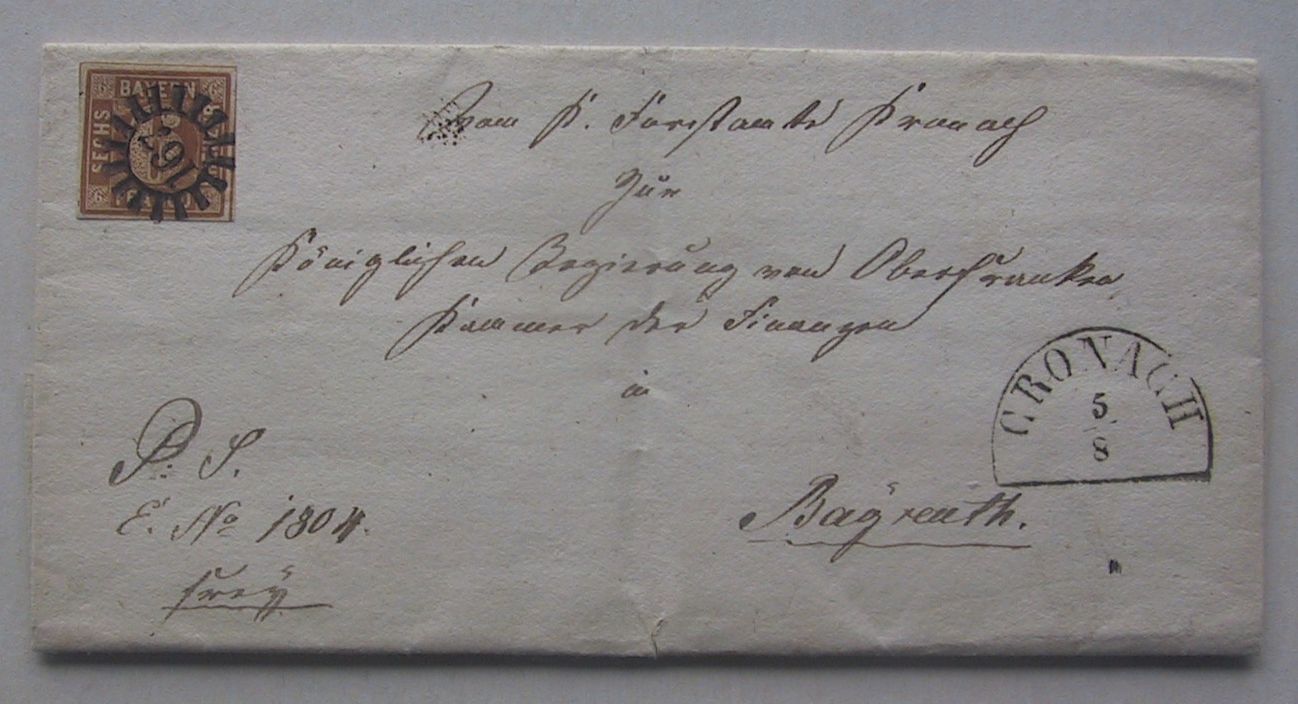 BAYERN
SECHS
6
Vom K. Forstamte Kronach
Zur
Königlichen Regierung von Oberfranken
Kammer der Finanzen
in
CRONACH
5/8
P. S.
E. No 1804.
Bayreuth.
frey